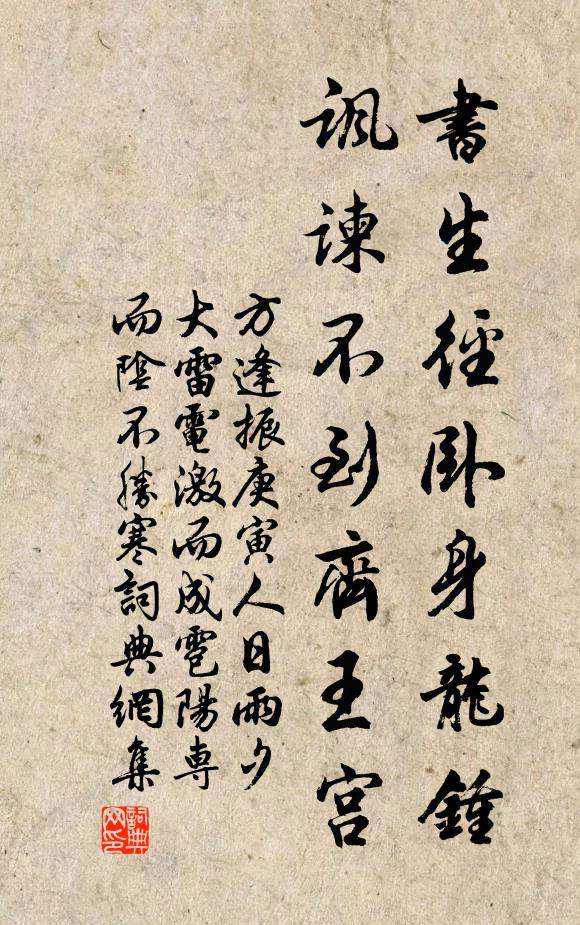 書生徑臥身龍鍾
諷諫不到齊王宮
方逢振庚寅人日雨夕
大雷電激而成雹陽専
而陰不勝寒詞典網集
詞典网印